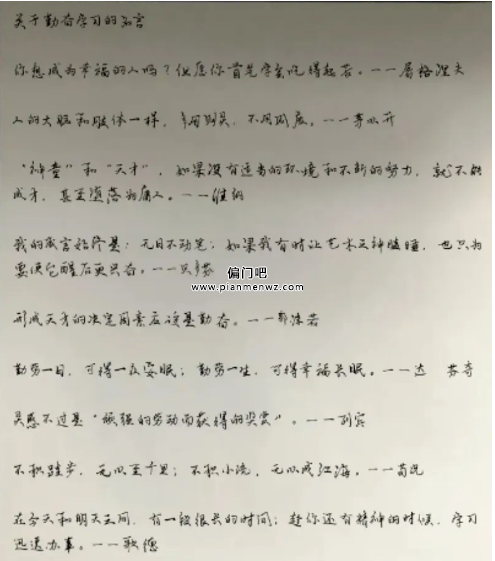 关于勤奋学习的名言
你想成为幸福的人吗?但愿你首先学会吃得起苦。——屠格涅夫
人的大脑和肢体一样,多用则灵,不用则废。——茅以升
“神童”和“天才”,如果没有适当的环境和不断的努力,就不能
成才,甚至堕落为庸人。——维纳
我的箴言始终是:无日不动笔;如果我有时让艺术之神瞌睡,也只为
要使它醒后更兴奋。——贝多芬
偏门吧
www.pianmenwz.com
形成天才的决定因素应该是勤奋。——郭沫若
勤劳一日,可得一夜安眠;勤劳一生,可得幸福长眠。——达 芬奇
灵感不过是“顽强的劳动而获得的奖赏”。——列宾
不积跬步,无以至千里;不积小流,无以成江海。——荀况
在今天和明天之间,有一段很长的时间;趁你还有精神的时候,学习
迅速办事。——歌德